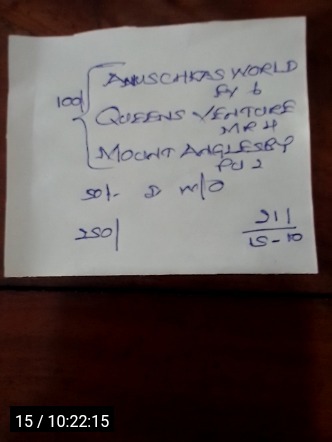 100/ ANUSCHKAS WORLD
QUEENS VENTURE
MR 4
MOUNT ANGLESBY
PU 2
50/- D W/O
250/
211
15-10
15 / 10:22:15